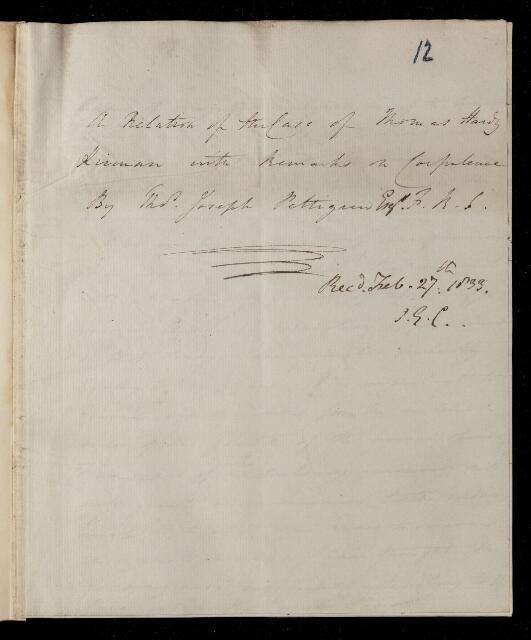 12
A Relation of the Case of Thomas Hardy
Kirman with Remarks on Corpulence
By Thos. Joseph Pettigrew Esqr. F. R. S.
Recd. Feb. 27th. 1833.
J. G. C.